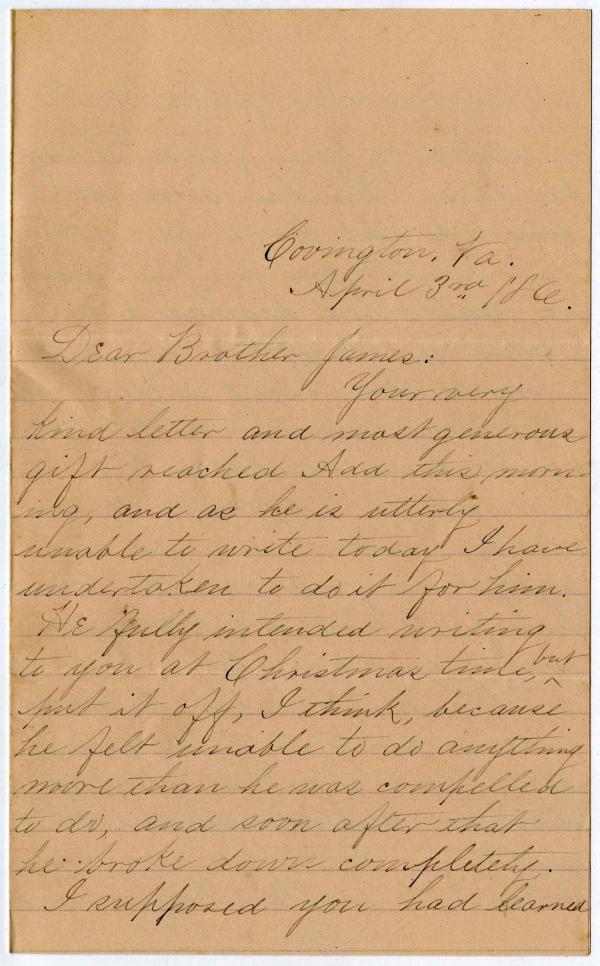 Covington, Va.
April 3rd /86.
Dear Brother James:
Your very
kind letter and most generous
gift reached Add this morn-
ing, and as he is utterly
unable to write today I have
undertaken to do it for him.
He fully intended writing
to you at Christmas time, but
put it off, I think, because
he felt unable to do anything
more than he was compelled
to do, and soon after that
he broke down completely.
I supposed you had learned